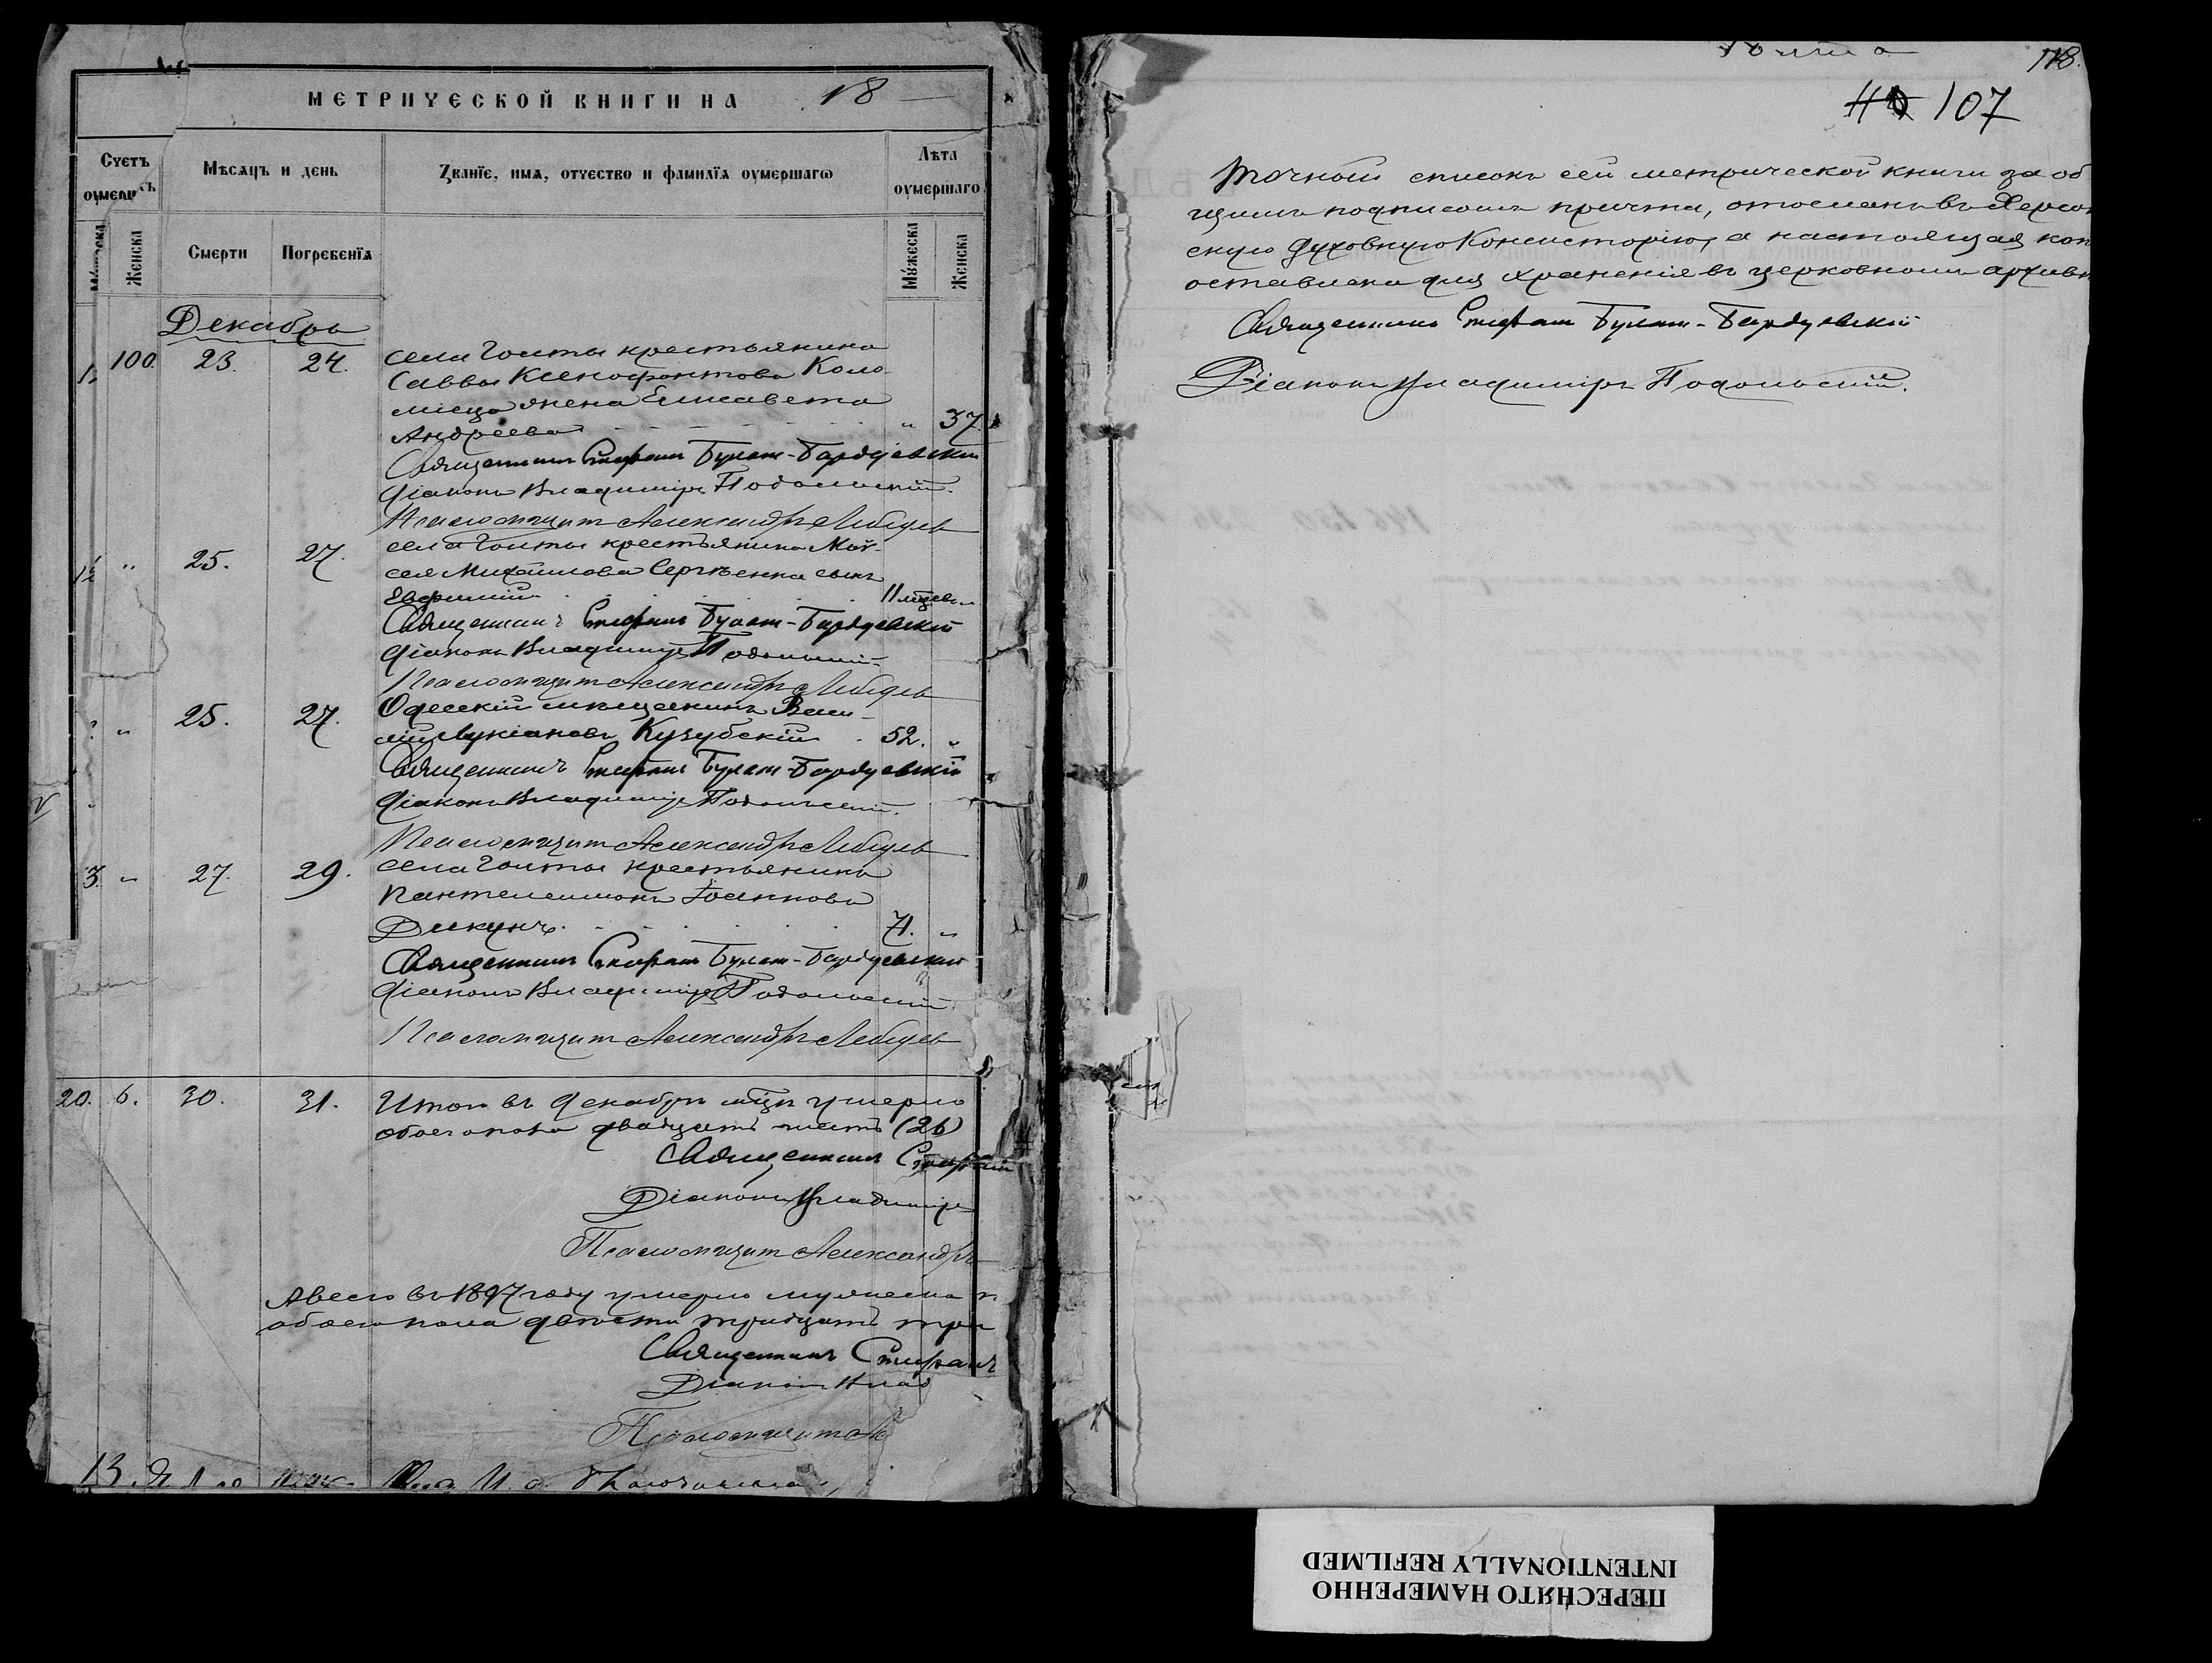 МЕТРИЧЕСКОЙ КНИГИ НА 18
Счетъ
Мѣсяцъ и день
Званїе, имя, отчество и фамилїя оумершагѡ
Лѣта
оумершаго
Женска
Смерти
Погребенїя
Мужеска
Женска
Декабрь
100. 23. 24. села Голты крестьянина
Саввы Ксенофонтова Коло-
мійца жена Елисавета
Андреева " 37.
Священникъ Стефанъ Булат-Бардуевскій
Діаконъ Владиміръ Подольскій.
Псаломщикъ Александръ Лебедев
" 25. 27. села Голты крестьянина Мой-
сея Михайлова Сергѣенка сынъ
Евфимій 11 мцев "
Священникъ Стефанъ Булат-Бардуевскій
Діаконъ Владиміръ Подольскій.
Псаломщикъ Александръ Лебедев
" 25. 27. Одесскій мѣщанинъ Васи-
лій Лукіановъ Кузубскій 52. "
Священникъ Стефанъ Булат-Бардуевскій
Діаконъ Владиміръ Подольскій.
Псаломщикъ Александръ Лебедев
3. " 27. 29. села Голты крестьянинъ
Пантелеимонъ Іоаннова
Дикунъ. 71. "
Священникъ Стефанъ Булат-Бардуевскій
Діаконъ Владиміръ Подольскій
Псаломщикъ Александръ Лебедев
20. 6. 30. 31. Итого въ Декабрѣ мцѣ умерло
обоего пола двадцать шесть (26)
Священникъ Стефанъ
Діаконъ Владиміръ
Псаломщикъ Александръ
А всего въ 1897 году умерло мужеска
обоего пола двѣсти тридцать три
Священникъ Стефанъ
Діаконъ Влад
Псаломщикъ
13.
118.
107
Точный списокъ сей метрической книги за об
щимъ подписомъ причта, отосланъ въ Херсон
скую Духовную Консисторію, а настоящая коп
оставлена для храненія въ церковномъ архивѣ
Священникъ Стефанъ Булат-Бардуевскій
Діаконъ Владиміръ Подольскій.
ПЕРЕСНЯТО НАМЕРЕННО
INTENTIONALLY REFILMED